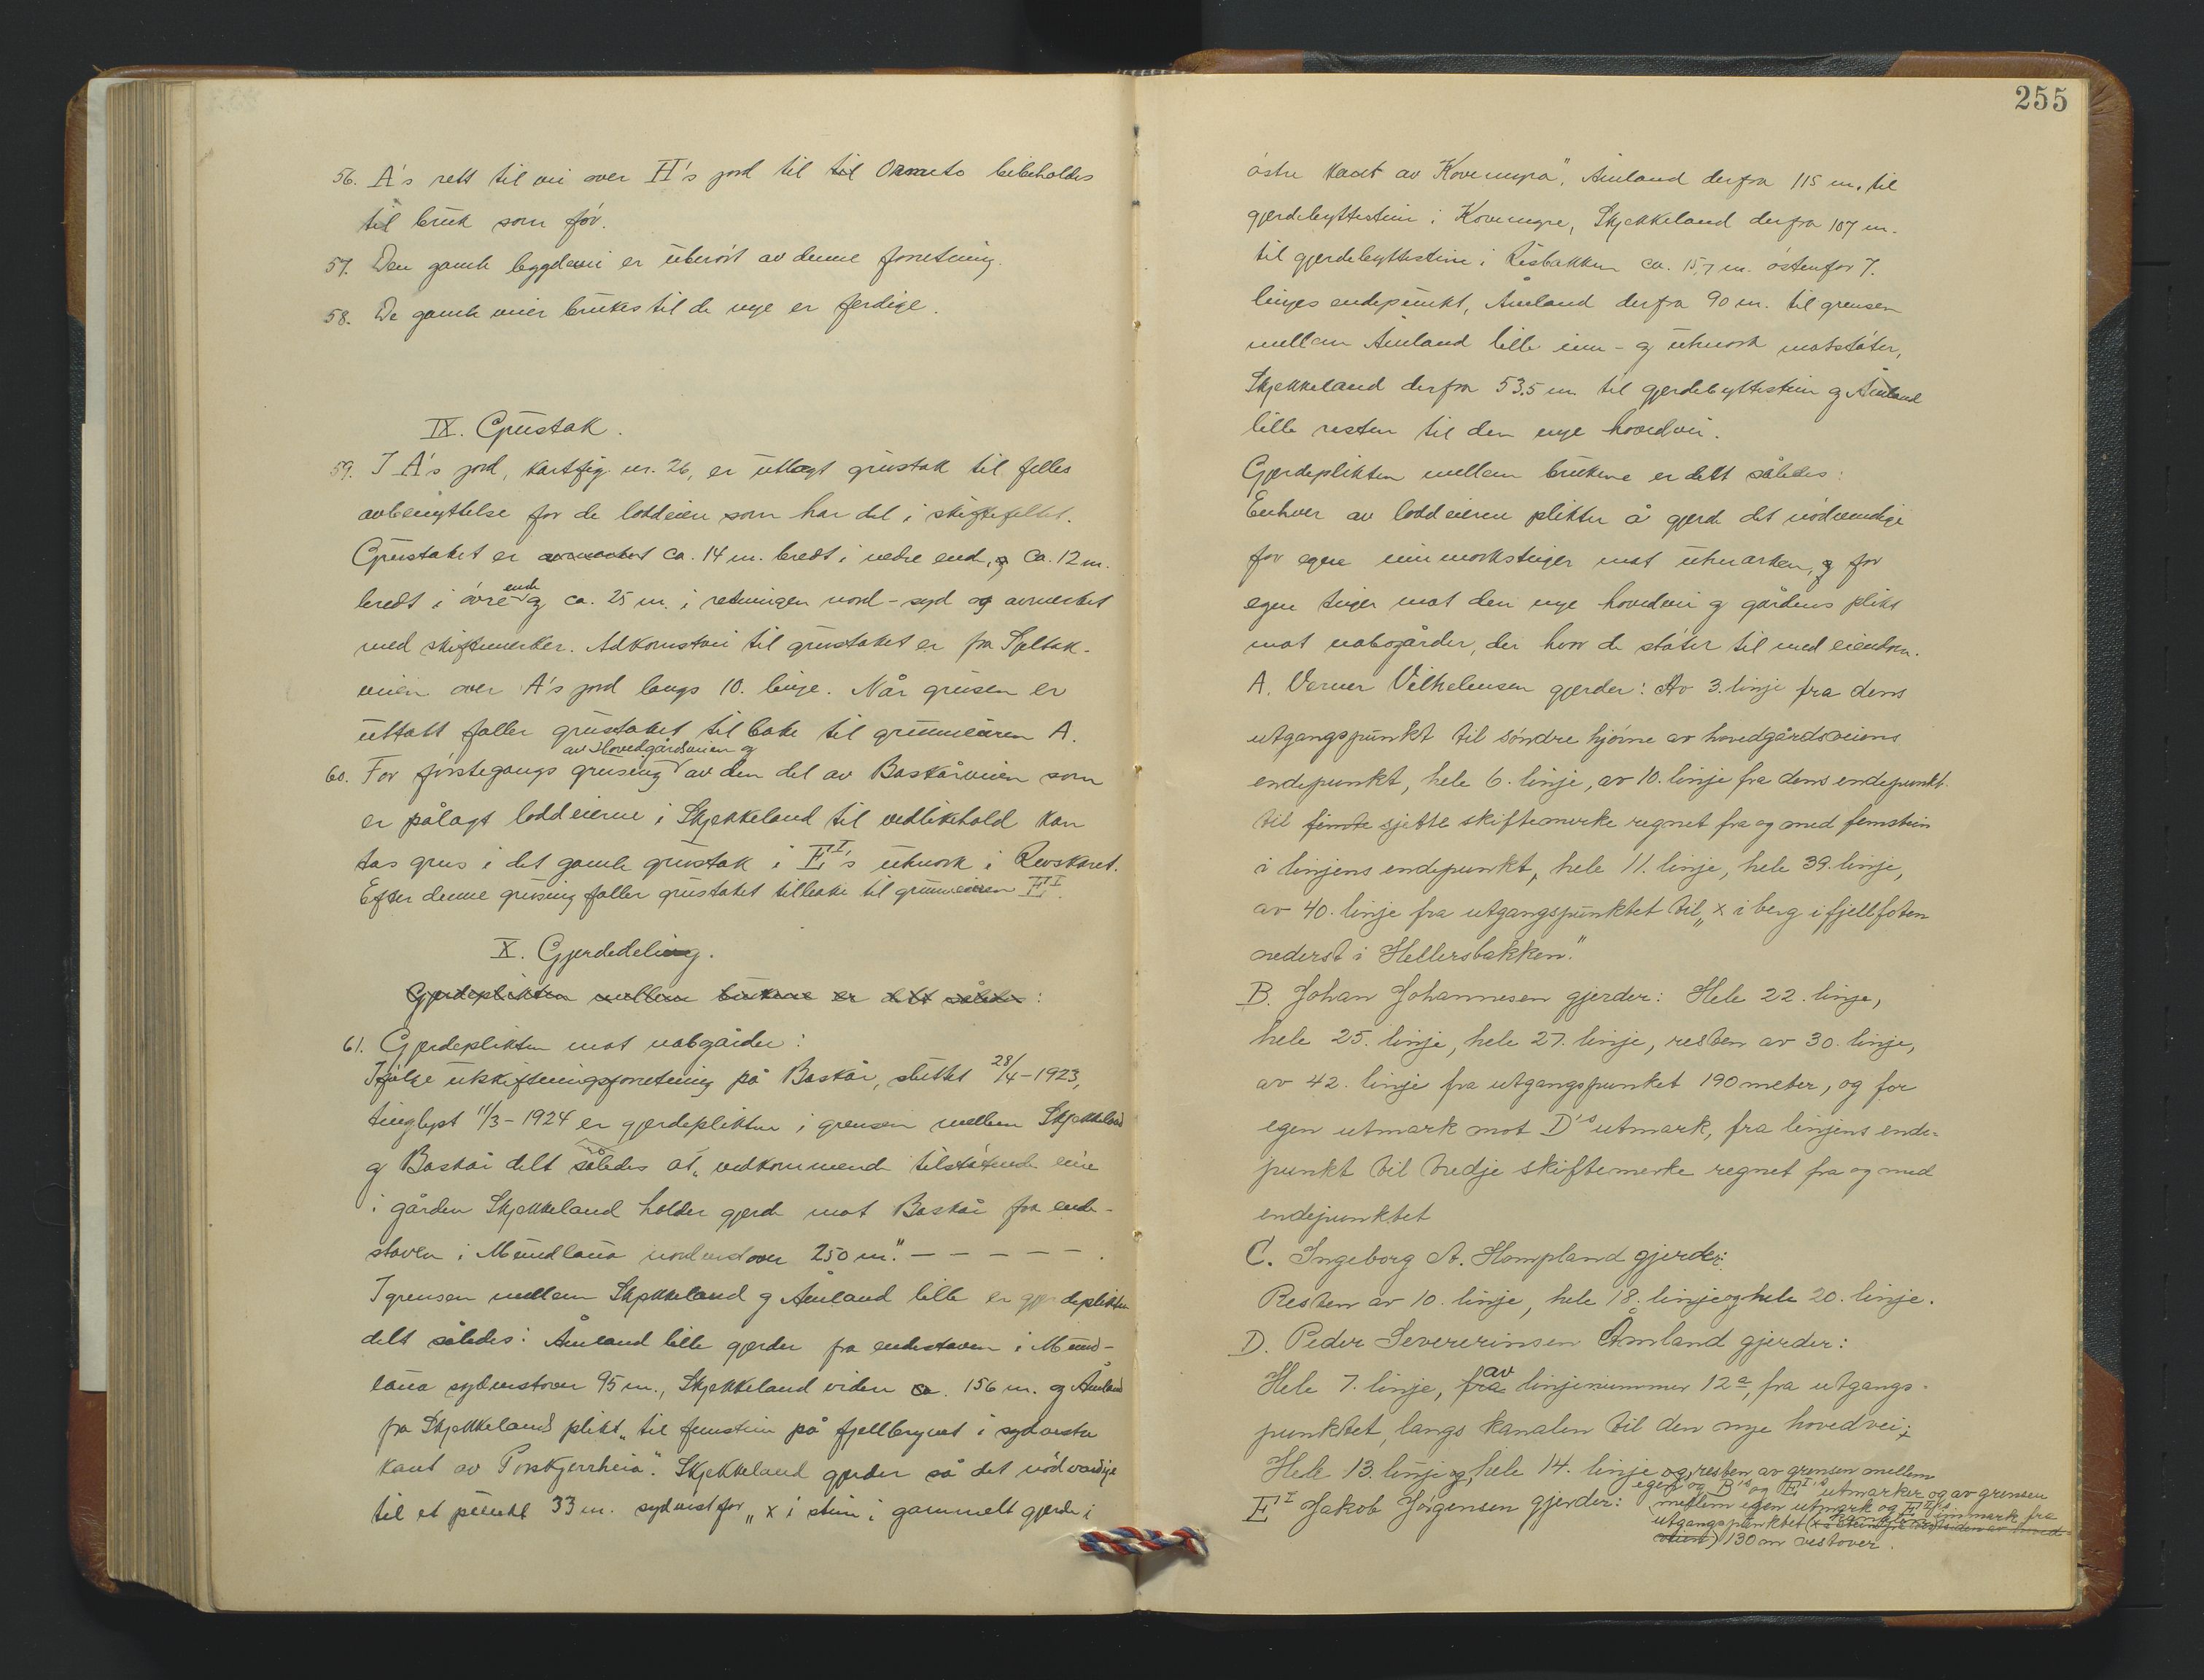 56. A's rett til vei over H's jord til til Ormeto beibeholdes
til bruk som før.
57. Den gamle bygdevei er uberørt av denne forretning.
58. De gamle veier brukes til de nye er ferdige.
IX. Grustak.
59. I A's jord, kartfig. nr. 26, er utlagt grustak til felles
avbenyttelse for de loddeiere som har del i skiftefeltet.
Grustaket er avmerket ca. 14 m. bredt i nedre ende, og ca. 12 m.
bredt i øvre ende og ca. 25 m. i retningen nord-syd og avmerket
med skiftemerker. Adkomstvei til grustaket er fra Sjeltak-
veien over A's jord langs 10. linje. Når grusen er
uttatt faller grustaket tilbake til grunneieren A.
60. For førstegangs grusing av Hovedgårdsveien og av den del av Baskårveien som
er pålagt loddeierne i Skjekkeland til vedlikehold kan
tas grus i det gamle grustak i E I's utmark i Revskaret.
Efter denne grusing faller grustaket tilbake til grunneieren E I.
X. Gjerdedeling.
Gjerdeplikten mellem brukene er delt således:
61. Gjerdeplikten mot nabogårder:
Ifølge utskiftningsforretning på Baskår, sluttet 28/4-1923,
tinglyst 11/3-1924 er gjerdeplikten i grensen mellem Skjekkeland
og Baskår delt således at „vedkommende tilstøtende eier
i gården Skjekkeland holder gjerde mot Baskår fra ende-
staven i Mundlaua nordvestover 250 m." - - - - - .
I grensen mellem Skjekkeland og Åmland lille er gjerdeplikten
delt således: Åmland lille gjerder fra endestaven i Mund-
laua sydvestover 95 m., Skjekkeland viden ca. 156 m. og Åmland
fra Skjekkelands plikt „til femstein på fjellbrynet i sydvestre
kant av Torskjerrheia". Skjekkeland gjerder så det nødvendige
til et punkt 33 m. sydvest for „x i stein i gammelt gjerde i
255
østre kant av Kovemyra", Åmland derfra 115 m. til
gjerdebyttestein i Kovemyra, Skjekkeland derfra 107 m.
til gjerdebyttestein i Risbakken ca. 15,7 m. østenfor 7.
linjes endepunkt, Åmland derfra 90 m. til grensen
mellem Åmland lille inn- og utmark motstøter,
Skjekkeland derfra 53.5 m. til gjerdebyttestein og Åmland
lille resten til den nye hovedvei.
Gjerdeplikten mellem brukene er delt således:
Enhver av loddeierne plikter å gjerde det nødvendige
for egne innmarksteiger mot utmarken, og for
egne teiger mot den nye hovedvei og gårdens plikt
mot nabogårder, der hvor de støter til med eiendom.
A. Verner Vilhelmsen gjerder: Av 3. linje fra dens
utgangspunkt til søndre hjørne av hovedgårdsveiens
endepunkt, hele 6. linje, av 10. linje fra dens endepunkt
til femte sjette skiftemerke regnet fra og med femstein
i linjens endepunkt, hele 11. linje, hele 39. linje,
av 40. linje fra utgangspunktet til „x i berg i fjellfoten
nederst i Hellersbakken."
B. Johan Johannesen gjerder: Hele 22. linje,
hele 25. linje, hele 27. linje, resten av 30. linje,
av 42. linje fra utgangspunket 190 meter, og for
egen utmark mot D's utmark, fra linjens ende-
punkt til tredje skiftemerke regnet fra og med
endepunktet
C. Ingeborg A. Hompland gjerder:
Resten av 10. linje, hele 18. linje og hele 20. linje.
D. Peder Severerinsen Åmland gjerder:
Hele 7. linje, fra av linjenummer 12a, fra utgangs-
punktet, langs kanalen til den nye hovedvei;
Hele 13. linje og, hele 14. linje og resten av grensen mellem
egen og B's og E I's utmarker og av grensen
mellem egen utmark og E II's innmark fra
utgangspunktet 130 m vestover.
E I Jakob Jørgensen gjerder: